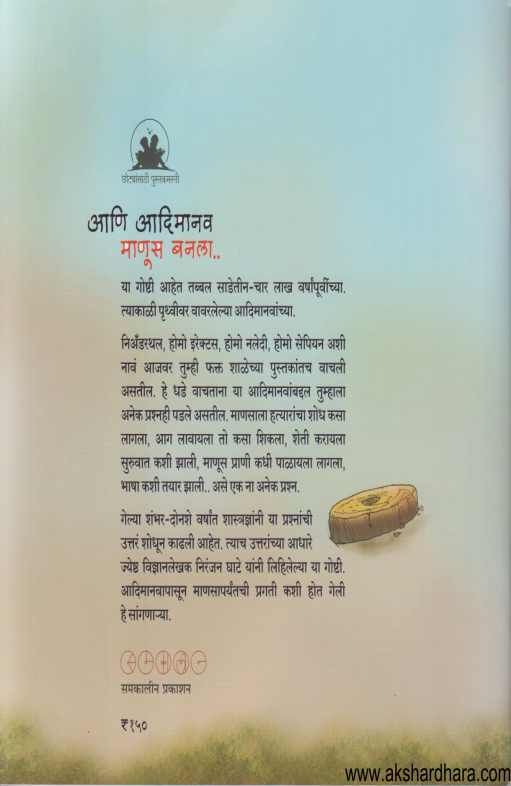 छोट्यांसाठी पुस्तकमस्ती
आणि आदिमानव
माणूस बनला..
या गोष्टी आहेत तब्बल साडेतीन-चार लाख वर्षांपूर्वीच्या.
त्याकाळी पृथ्वीवर वावरलेल्या आदिमानवांच्या.
निअँडरथल, होमो इरेक्टस, होमो नलेदी, होमो सेपियन अशी
नावं आजवर तुम्ही फक्त शाळेच्या पुस्तकांतच वाचली
असतील. हे धडे वाचताना या आदिमानवांबद्दल तुम्हाला
अनेक प्रश्नही पडले असतील. माणसाला हत्यारांचा शोध कसा
लागला, आग लावायला तो कसा शिकला, शेती करायला
सुरुवात कशी झाली, माणूस प्राणी कधी पाळायला लागला,
भाषा कशी तयार झाली.. असे एक ना अनेक प्रश्न.
गेल्या शंभर-दोनशे वर्षांत शास्त्रज्ञांनी या प्रश्नांची
उत्तरं शोधून काढली आहेत. त्याच उत्तरांच्या आधारे
ज्येष्ठ विज्ञानलेखक निरंजन घाटे यांनी लिहिलेल्या या गोष्टी.
आदिमानवापासून माणसापर्यंतची प्रगती कशी होत गेली
हे सांगणाऱ्या.
समकालीन प्रकाशन
₹१५०
www.akshardhara.com